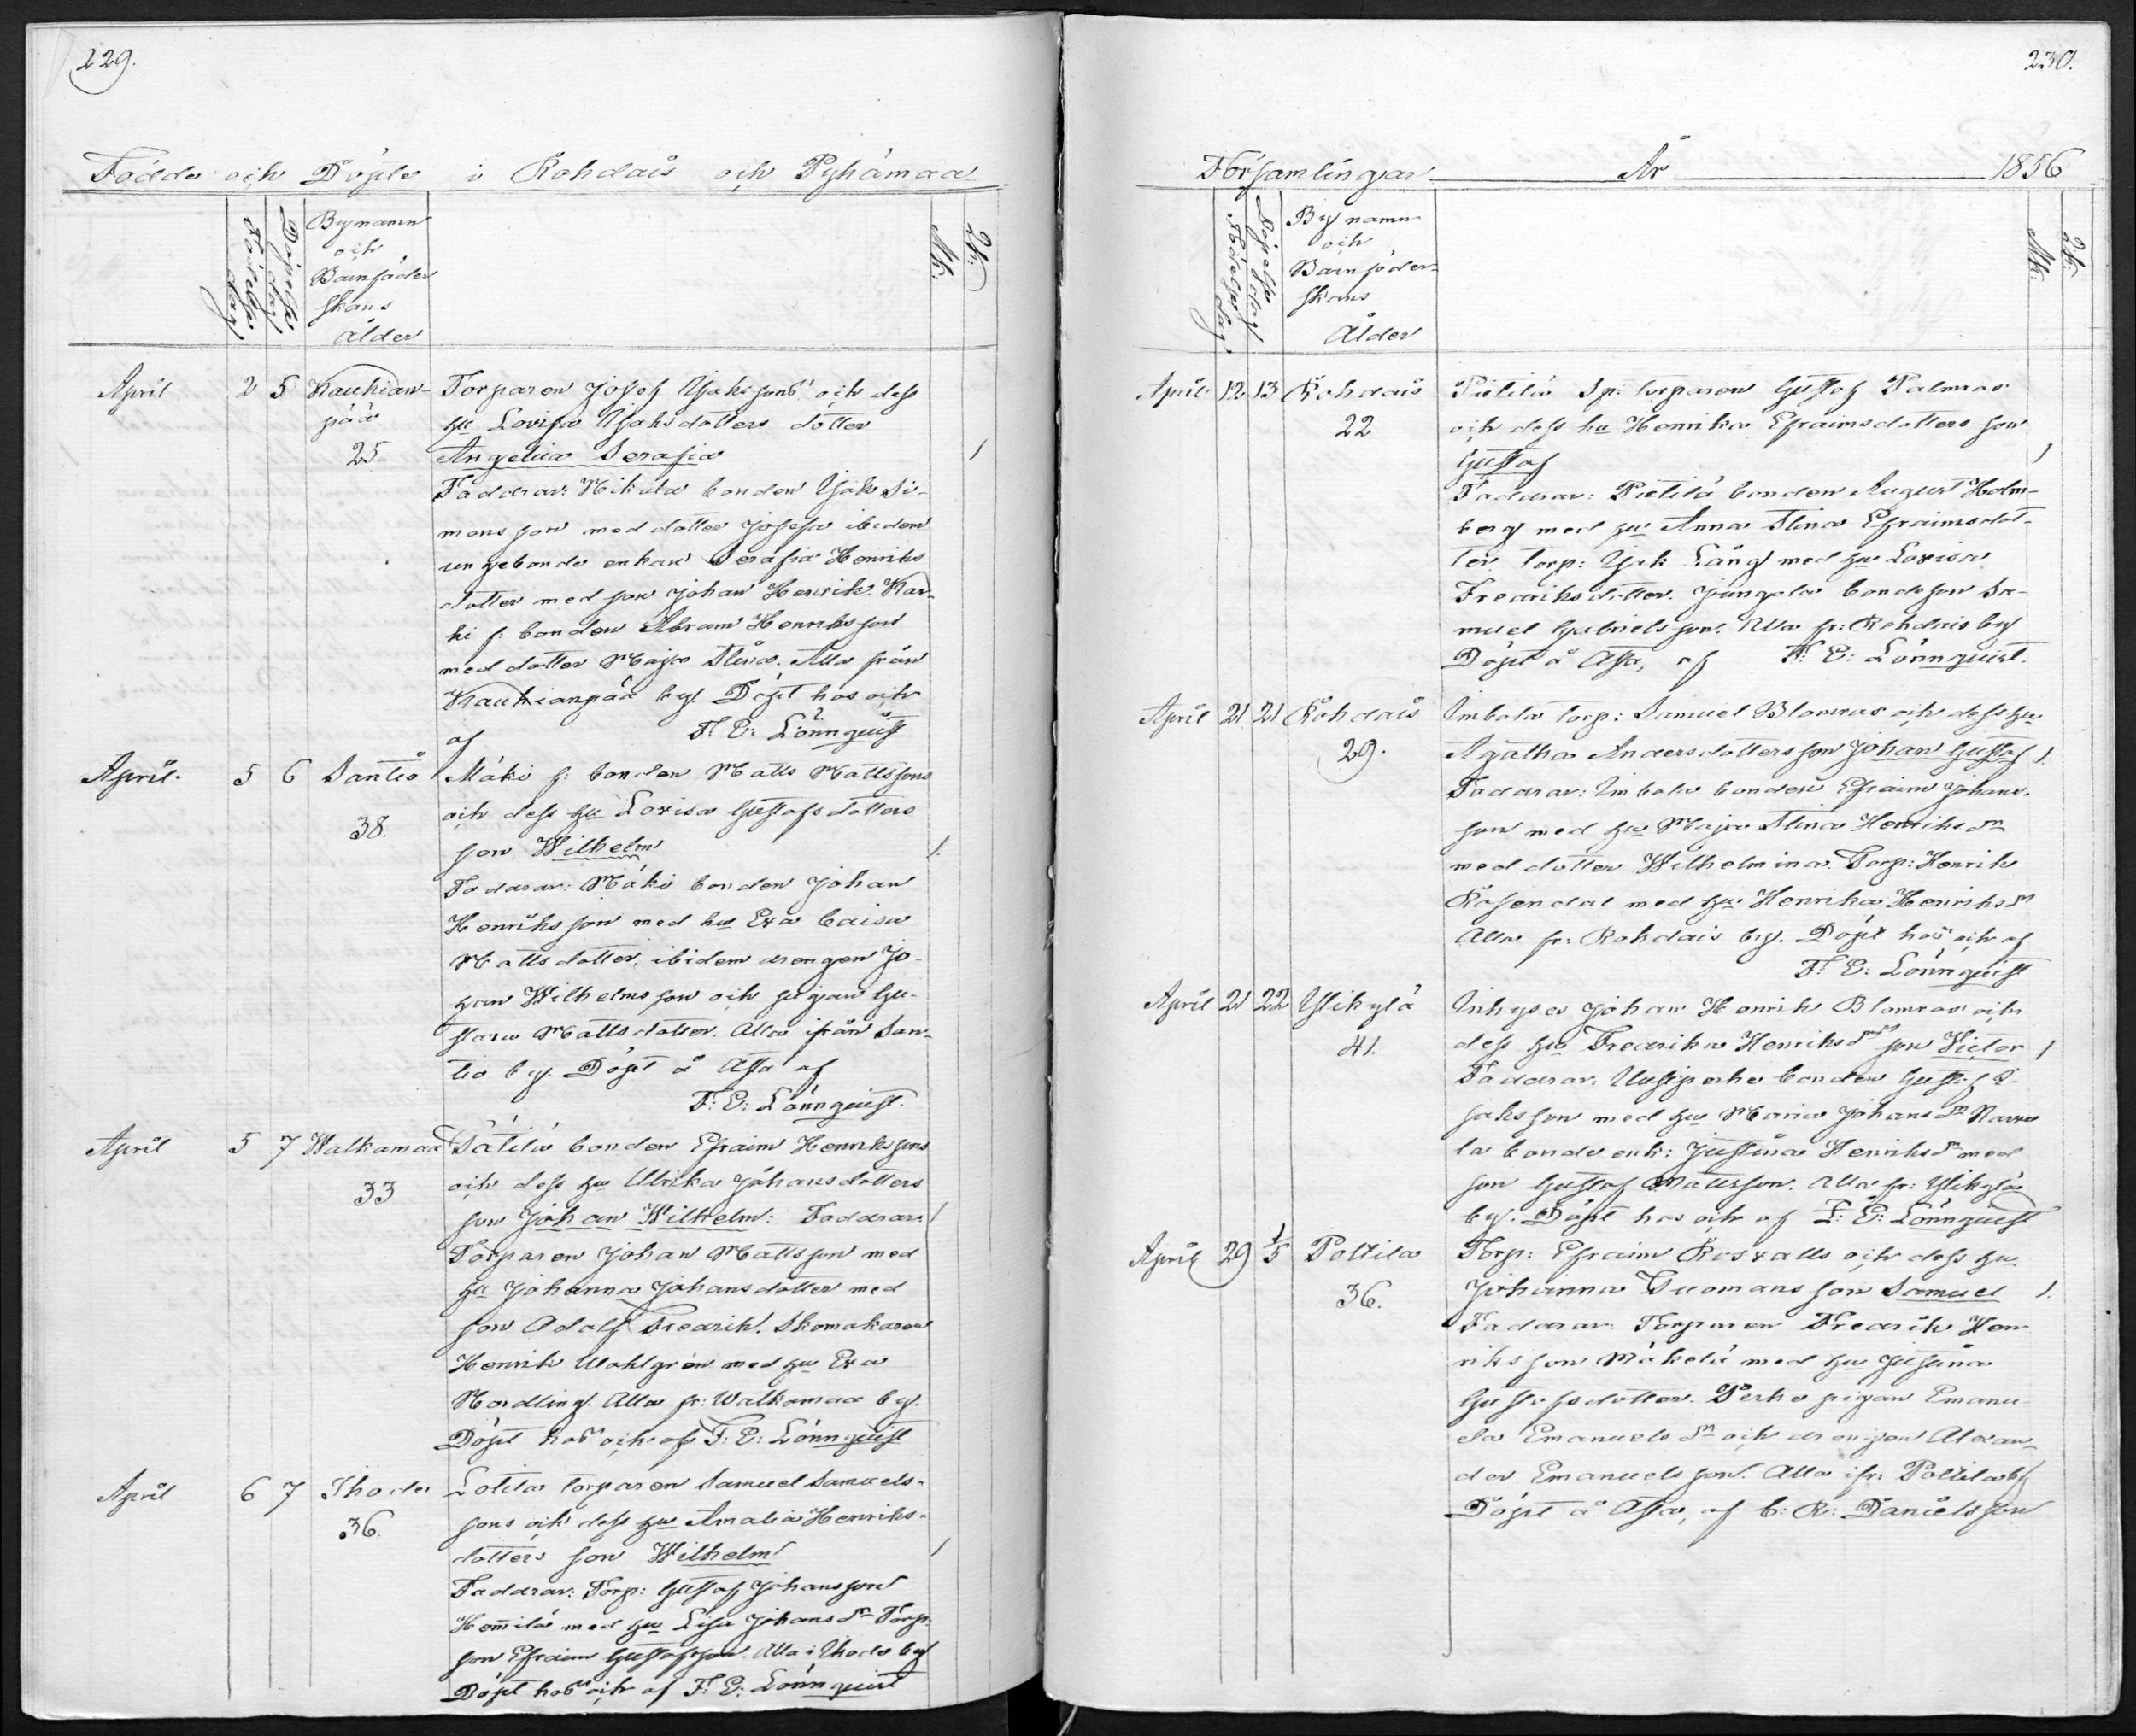 229.
Födde och Döpte i Rohdais och Pyhämaa
Födelse dag
Döpelse dag
Bynamn
och
Barnföder
skans
ålder
Mk:
Qk:
April 2 5 Kauhian-
pää
25
Torparen Josef Isakssons och dess
hu Lovisa Isaksdotters dotter
Angelica Serafia 1
Faddrar: Mikola bonden Isak Si-
mons son med dotter Josefa ibidem
unge bonde enkan Serafia Henriks
dotter med son Johan Henrik. Kar-
hi f: bonden Abram Henriksson
med dotter Maja Stina. Alla från
Kauhianpää by. Döpt hos och
af F. E: Lönnquist
April 5 6 Santio
38.
Mäki f: bonden Matts Mattssons
och dess hu Lovisa Gustafsdotters
son Wilhelm 1.
Faddrar: Mäki bonden Johan
Henriksson med hu Eva Caisa
Mattsdotter, ibidem drengen Jo-
han Wilhelmsson och pigan Gu-
stava Mattsdotter. Alla ifrån San-
tio by. Döpt å Assa af
F: E: Lönnquist.
April 5 7 Walkamaa
33
Sätilä bonden Efraim Henrikssons
och dess hu Ulrika Johansdotters
son Johan Wilhelm: Faddrar: 1
Torparen Johan Mattsson med
hu Johanna Johansdotter med
son Adolf Fredrik. Skomakaren
Henrik Wahlgren med hu Eva
Nordling. Alla fr: Walkamaa by.
Döpt hos och af F: E: Lönnquist
April 6 7 Ihode
36.
Lotila torparen Samuel Samuels-
sons och dess hu Amalia Henriks-
dotters son Wilhelm 1
Faddrar: Torp: Gustaf Johansson
Hemilä med hu Lisa Johans dr Torp:
son Efraim Gustafsson. Alla i Ihode by
Döpt hos och af F: E: Lönnquist
230.
Församlingar År 1856
Födelse dag
Döpelse dag
Bynamn
och
Barnföder-
skans
Ålder
Mk:
Qk:
April 12 13 Rohdais
22
Pietilä Sp: torparen Gustaf Palmros
och dess hu Henrika Efraimsdotters son
Gustaf 1
Faddrar: Pietilä bonden August Holm-
berg med hu Anna Stina Efraimsdot-
ter, torp: Isak Lång med hu Lovisa
Fredriksdotter. Jungola bondeson Sa-
muel Gabrielsson. Alla fr: Rohdais by
Döpt å Assa, af F: E: Lönnquist.
April 21 21 Rohdais
29.
Imbola torp: Samuel Blomros och dess hu
Agatha Andersdotters son Johan Gustaf 1.
Faddrar: Imbola bonden Efraim Johans-
son med hu Maja Stina Henriks dr
med dotter Wilhelmina. Torp: Henrik
Rosendal med hu Henrika Henriks dr
Alla fr: Rohdais by. Döpt hos och af
F: E: Lönnquist
April 21 22 Ylikylä
41.
Inhyses Johan Henrik Blomros och
dess hu Fredrika Henriks drs son Victor 1
Faddrar: Uusiperhe bonden Gustaf I-
saksson med hu Maria Johans dr
la bonde enk: Justina Henriks dr med
son Gustaf Mattsson. Alla fr: Ylikylä
by. Döpt hos och af F: E: Lönnquist
April 29 1/5 Poltila
36.
Torp: Efraim Rosvalls och dess hu
Johanna Tuomans son Samuel 1.
Faddrar: Torparen Fredrik Hen
riksson Mäkelä med hu Justina
Gustafsdotter. Perho pigan Emanu
ela Emanuels dr och drengen Alexan-
der Emanuelsson. Alla ifr: Poltila by
Döpt å Assa, af C: R: Danielsson